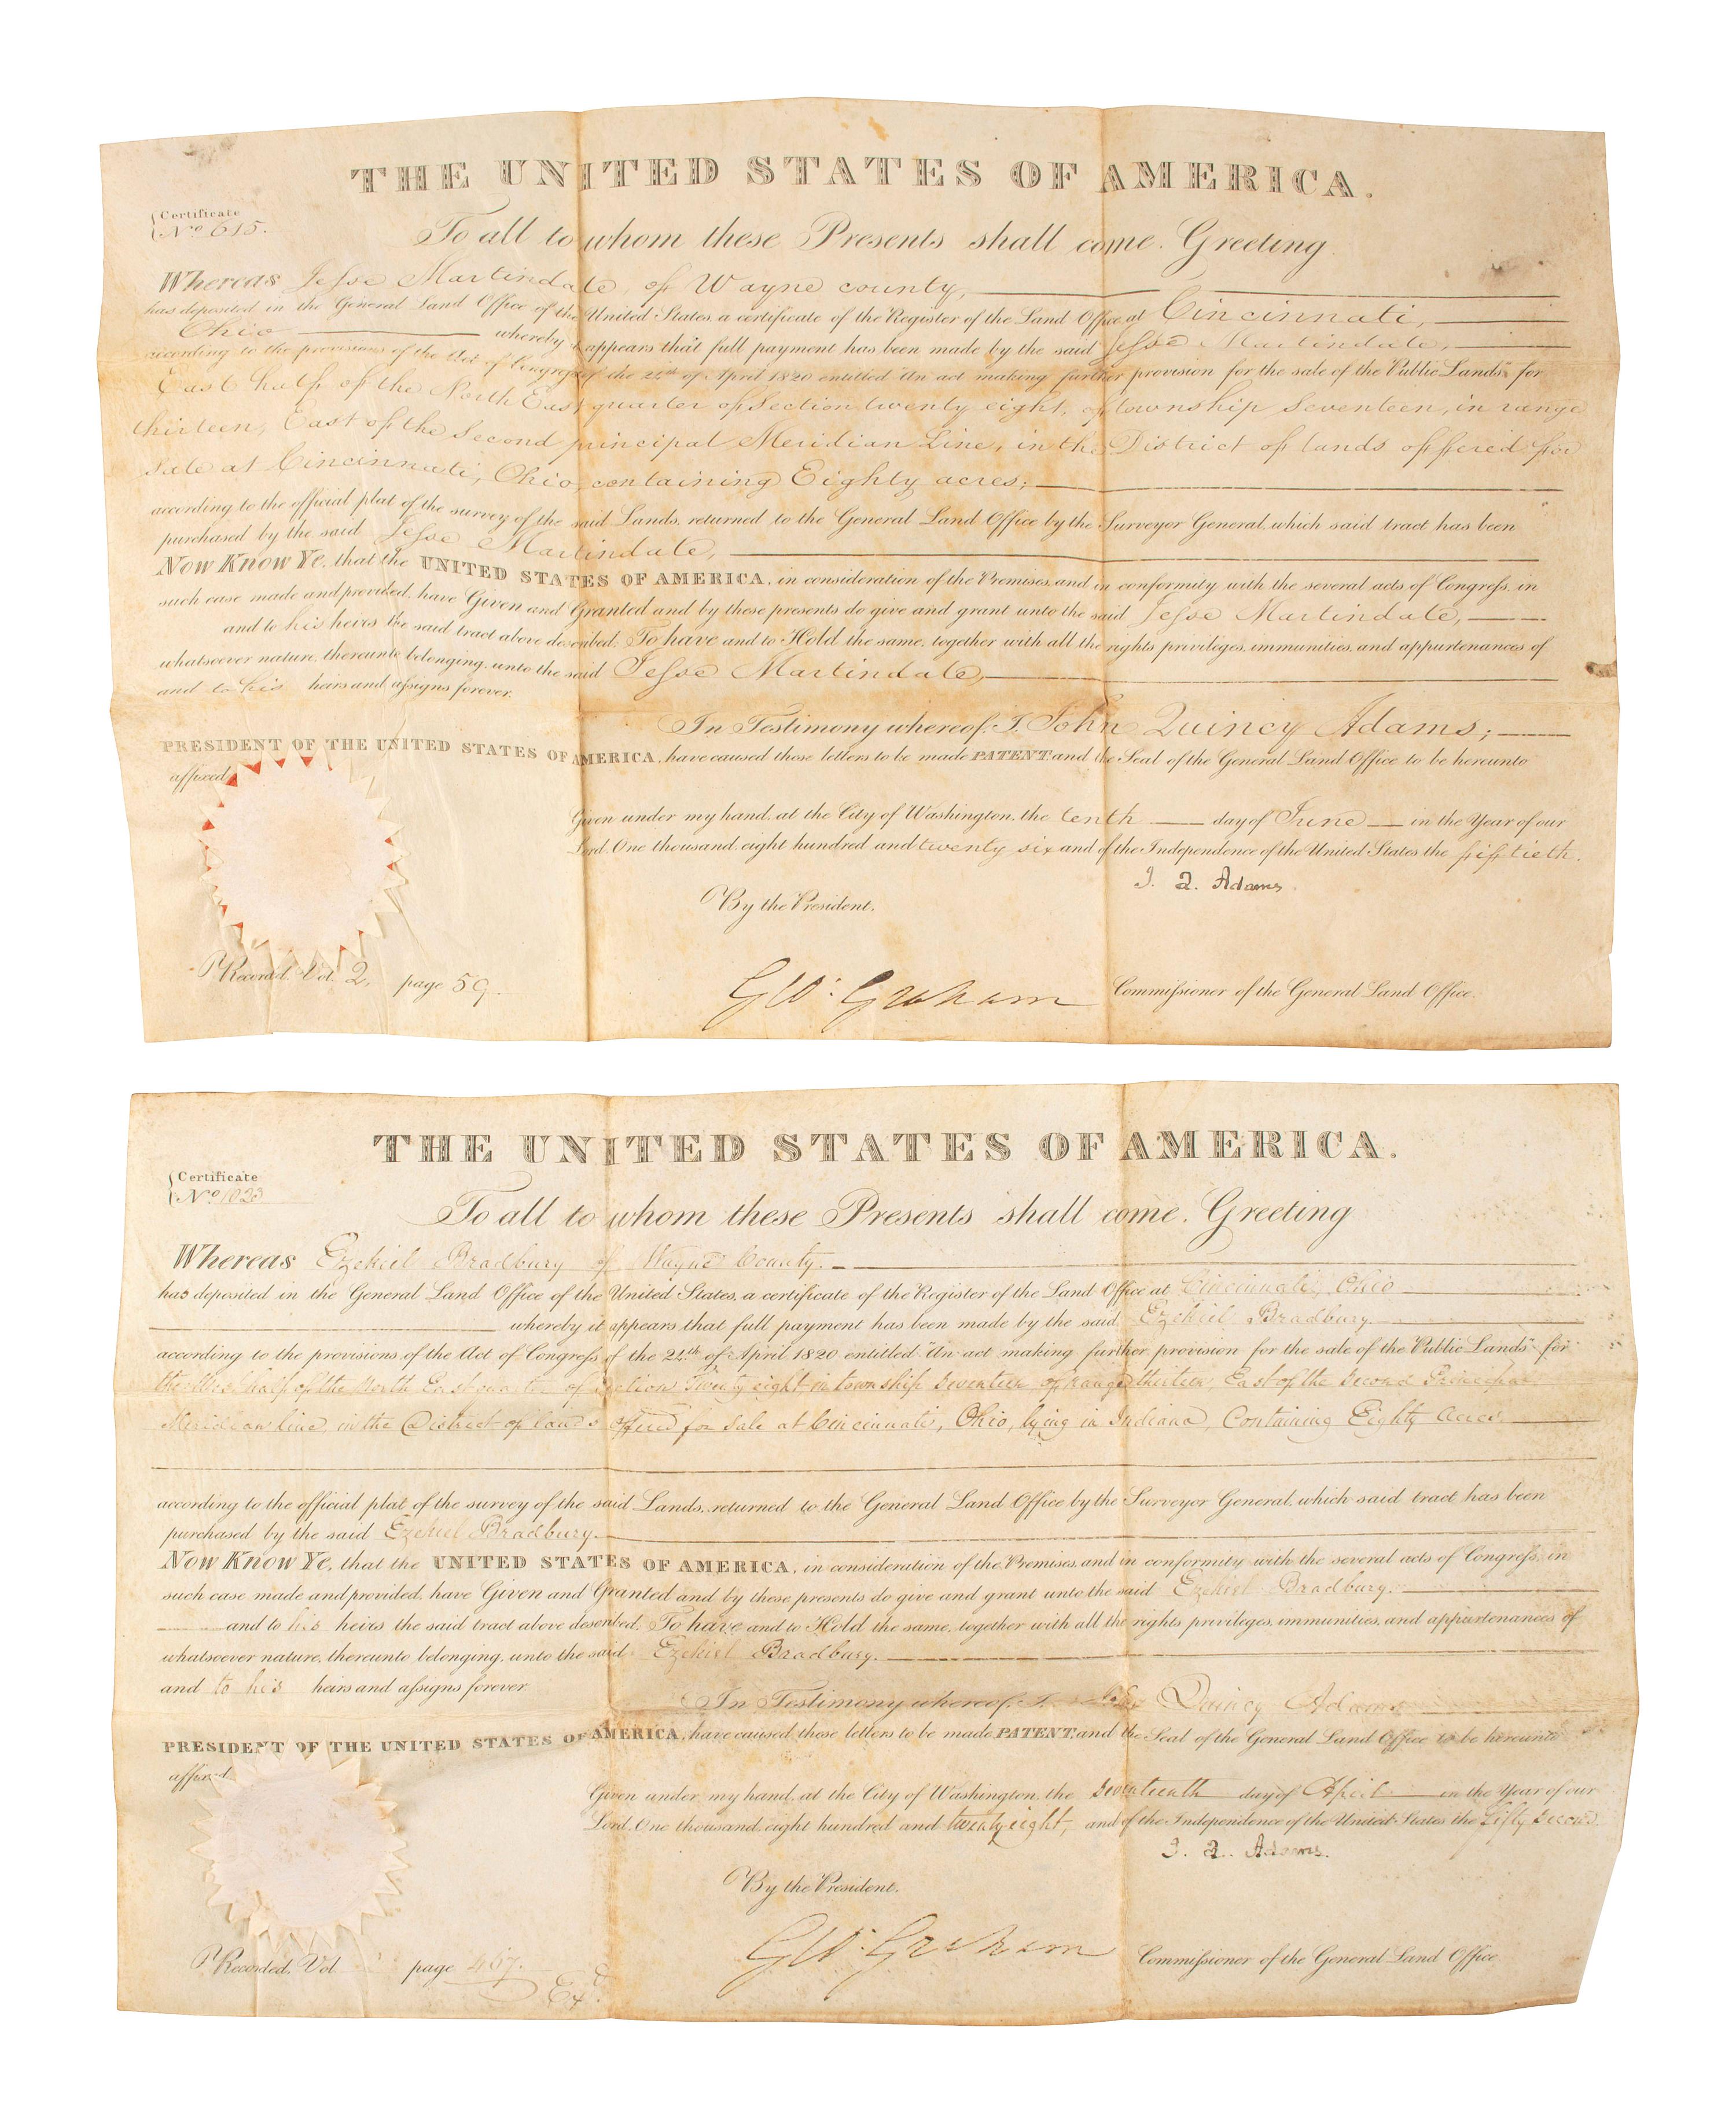 THE UNITED STATES OF AMERICA.
Certificate
No 615.
To all to whom these Presents shall come, Greeting
Whereas Jesse Martindale, of Wayne county,
has deposited in the General Land Office of the United States, a certificate of the Register of the Land Office at Cincinnati,
Ohio whereby it appears that full payment has been made by the said Jesse Martindale,
according to the provisions of the Act of Congress of the 24th of April 1820 entitled "An act making further provision for the sale of the Public Lands" for
East half of the North East quarter of Section twenty eight, of township Seventeen, in range
thirteen, East of the Second principal Meridian Line, in the District of lands offered for
Sale at Cincinnati, Ohio, containing Eighty acres;
according to the official plat of the survey of the said Lands, returned to the General Land Office by the Surveyor General, which said tract has been
purchased by the said Jesse Martindale,
Now Know Ye, that the UNITED STATES OF AMERICA, in consideration of the Premises, and in conformity with the several acts of Congress, in
such case made and provided, have Given and Granted and by these presents do give and grant unto the said Jesse Martindale,
and to his heirs the said tract above described, To have and to Hold the same, together with all the rights privileges, immunities, and appurtenances of
whatsoever nature, thereunto belonging, unto the said Jesse Martindale,
and to his heirs and assigns forever.
In Testimony whereof, I, John Quincy Adams;
PRESIDENT OF THE UNITED STATES OF AMERICA, have caused these letters to be made PATENT, and the Seal of the General Land Office to be hereunto
affixed.
Given under my hand, at the City of Washington, the tenth day of June in the Year of our
Lord, One thousand eight hundred and twenty six and of the Independence of the United States the fiftieth.
J. Q. Adams
By the President.
Recorded, Vol. 2, page 59.
G W. Graham Commissioner of the General Land Office.
THE UNITED STATES OF AMERICA.
Certificate
No 1023
To all to whom these Presents shall come, Greeting
Whereas Ezekiel Bradbury of Wayne County.
has deposited in the General Land Office of the United States, a certificate of the Register of the Land Office at Cincinnati, Ohio
whereby it appears that full payment has been made by the said Ezekiel Bradbury
according to the provisions of the Act of Congress of the 24th of April 1820 entitled "An act making further provision for the sale of the Public Lands" for
the West half of the North East quarter of Section Twenty eight in township Seventeen of range thirteen, East of the Second Principal
Meridian line, in the District of lands offered for Sale at Cincinnati, Ohio, lying in Indiana, Containing Eighty Acres
according to the official plat of the survey of the said Lands, returned to the General Land Office by the Surveyor General, which said tract has been
purchased by the said Ezekiel Bradbury.
Now Know Ye, that the UNITED STATES OF AMERICA, in consideration of the Premises, and in conformity with the several acts of Congress, in
such case made and provided, have Given and Granted and by these presents do give and grant unto the said Ezekiel Bradbury.
and to his heirs the said tract above described, To have and to Hold the same, together with all the rights privileges, immunities, and appurtenances of
whatsoever nature, thereunto belonging, unto the said Ezekiel Bradbury.
and to his heirs and assigns forever
In Testimony whereof, I, John Quincy Adams
PRESIDENT OF THE UNITED STATES OF AMERICA, have caused these letters to be made PATENT, and the Seal of the General Land Office to be hereunto
affixed.
Given under my hand, at the City of Washington, the Seventeenth day of April in the Year of our
Lord, One thousand eight hundred and twenty eight, and of the Independence of the United States the Fifty Second
J. Q. Adams.
By the President.
Recorded, Vol. page 467.
G W. Graham Commissioner of the General Land Office